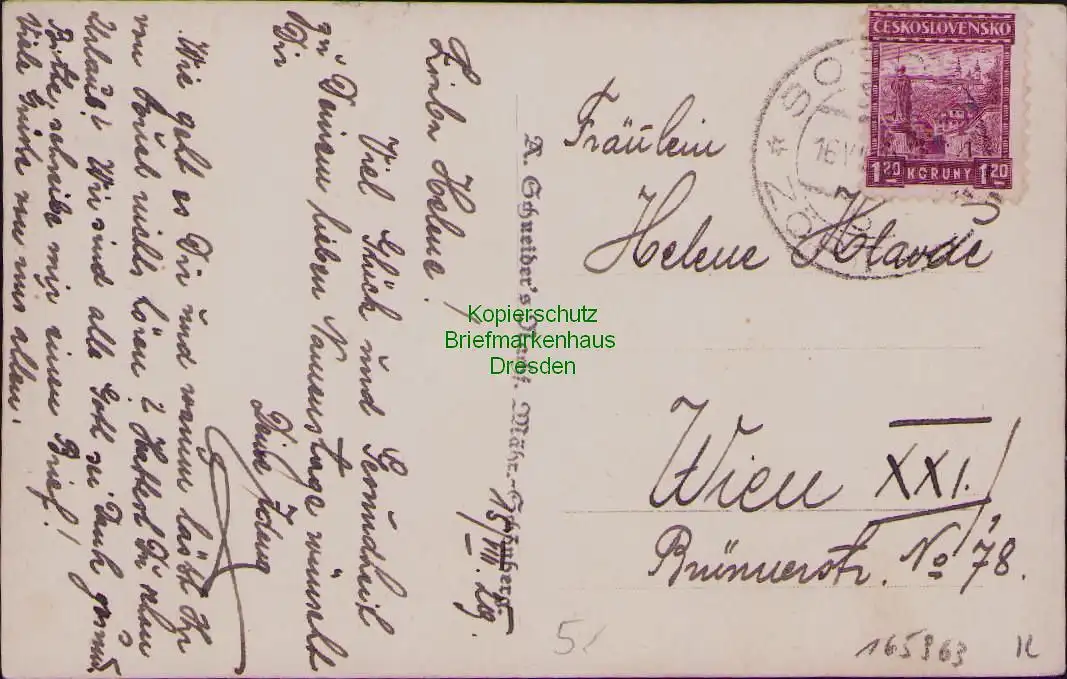 15/VIII. 29.
Liebe Helene!
Viel Glück und Gesundheit
zu Deinem lieben Namenstage wünscht
Dir
Deine
Wie geht es Dir und warum lässt Ihr
von Euch nichts hören? Hattest Du schon
Urlaub? Wir sind alle Gott sei Dank gesund
Bitte, schreibe mir einen Brief!
Viele Grüße von uns allen.
R. Schneider's Mähr.-Schönberg.
Kopierschutz
Briefmarkenhaus
Dresden
ČESKOSLOVENSKO
1.20 KORUNY 1.20
SO
16.VI
Fräulein
Helene
Wien XXI.
Brünnerstr. No 78.
5
165363 K